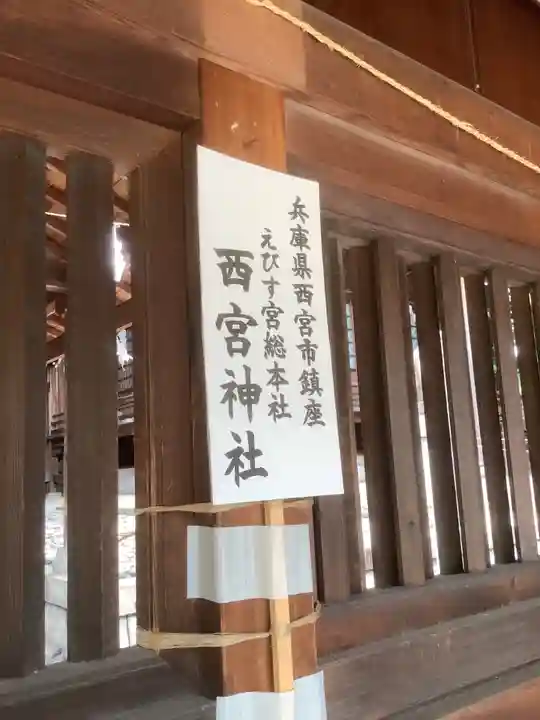 兵庫県西宮市鎮座
えびす宮総本社
西宮神社